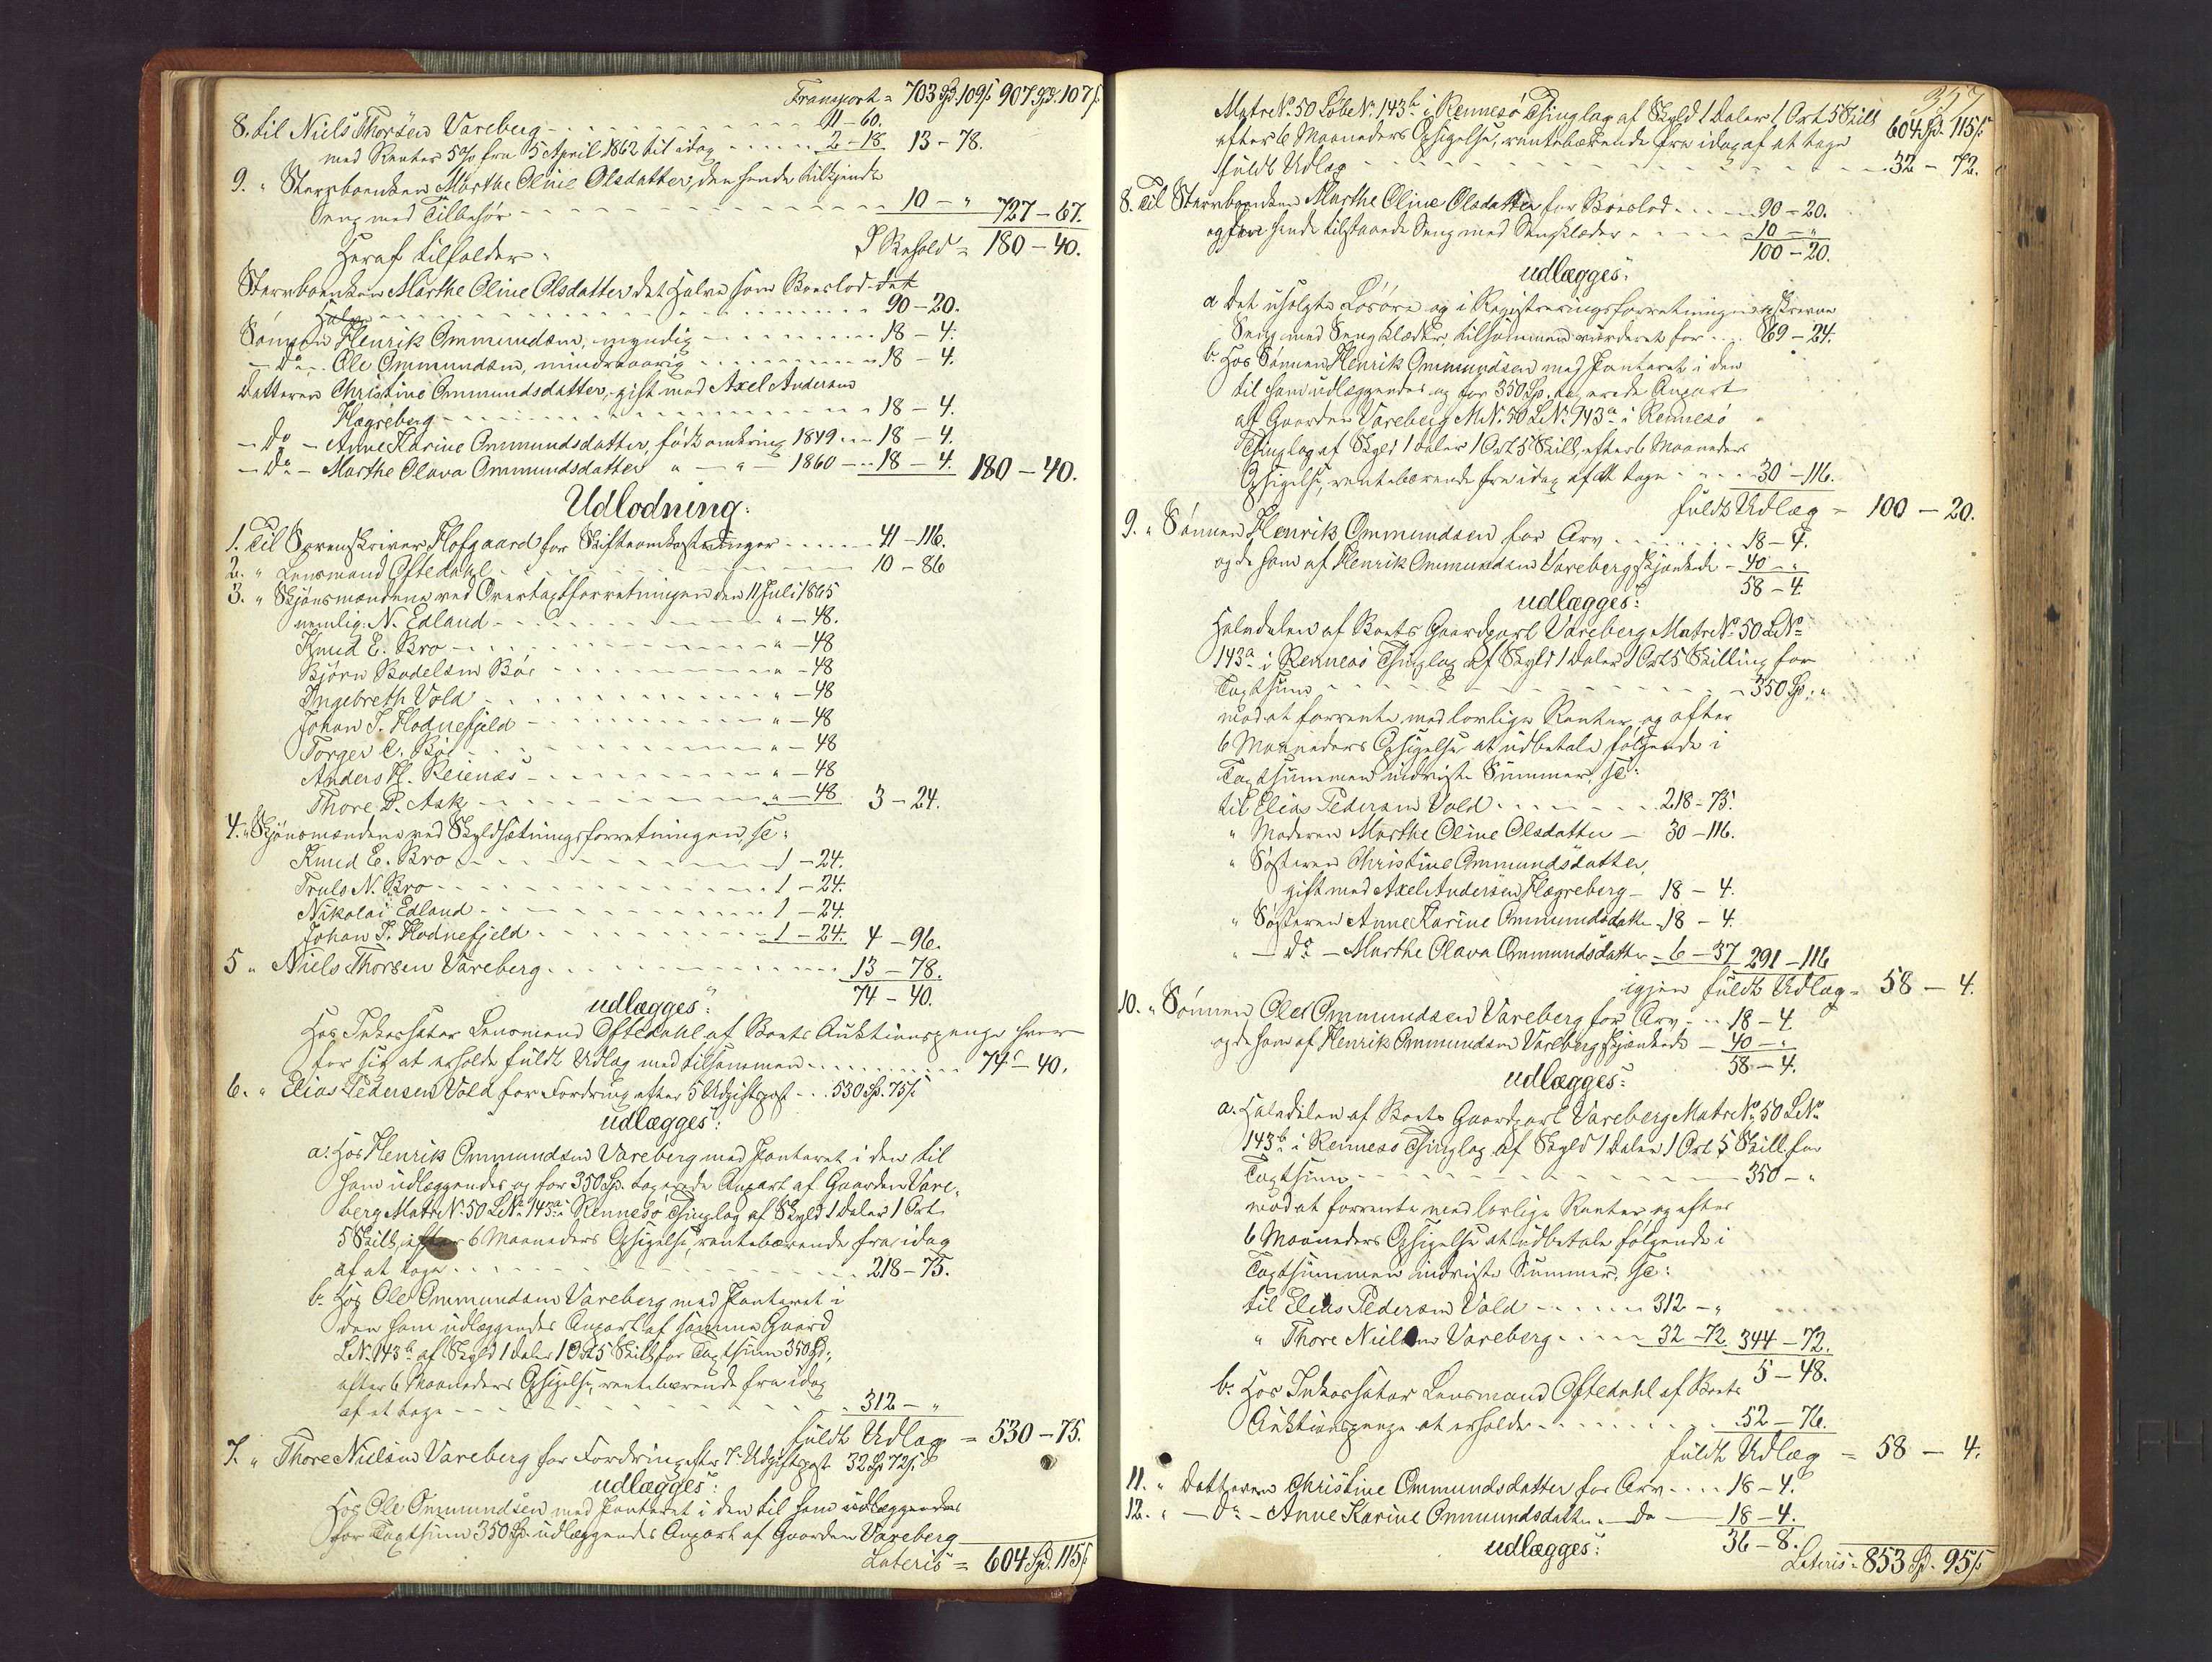 Transport = 703 Spd. 109 s. 907 Spd. 107 s.
8. til Niels Thorsen Vareberg - - - 11 - 60.
med Renter 5 % fra 5 April 1862 til idag - - - 2 - 18 13 - 78.
9. " Stervboenken Marthe Oline Olsdatter, den hende tilkjendte
Seng med Tilbehør - - - 10 - " 727 - 67.
I Behold = 180 - 40.
Heraf tilfalder:
Stervboenken Marthe Oline Olsdatter det Halve som Boeslod det
Halve - - - 90 - 20.
Sønnen Henrik Ommundsen, myndig - - - 18 - 4.
- Do - Ole Ommundsen, mindreaarig - - - 18 - 4.
Datteren Christine Ommundsdatter, gift med Axel Andersen
Hægreberg - - - 18 - 4.
- Do - Anne Karine Ommundsdatter, født omkring 1849 - - 18 - 4.
- Do - Marthe Olava Ommundsdatter " - " - 1860 - - 18 - 4. 180 - 40.
Udlodning:
1. Til Sorenskriver Hofgaard for Skifteomkostninger - - - 41 - 116.
2. " Lensmand Oftedahl - - - 10 - 86
3. " Skjønsmændene ved Overtaxtforretningen den 11 Juli 1865
nemlig: N. Edland - - - " - 48.
Knud E. Bro - - - " - 48
Bjørn Bodelsen Bøe - - - " - 48
Ingebreth Vold - - - " - 48
Johan S. Hodnefjeld - - - " - 48
Torger C. Bøe - - - " - 48
Anders H. Reienæs - - - " - 48
Thore P. Ask - - - " - 48 3 - 24.
4. " Skjønsmændene ved Skyldsætningsforretningen, sc:
Knud E. Bro - - - 1 - 24.
Truls N. Bro - - - 1 - 24.
Nikolai Edland - - - 1 - 24.
Johan S. Hodnefjeld - - - 1 - 24. 4 - 96.
5 " Niels Thorsen Vareberg - - - 13 - 78.
74 - 40.
udlægges:
Hos Inkassator Lensmand Oftedahl af Boets Auktionspenge hver
for sig at erholde fuldt Udlæg med tilsammen - - - 74 - 40.
6. " Elias Pedersen Vold for Fordring efter 5 Udgiftspost - - - 530 Sp. 75 s.
udlægges:
a. Hos Henrik Ommundsen Vareberg med Panteret i den til
ham udlæggendes og for 350 Sp. taxerede Anpart af Gaarden Vare-
berg Matr. No. 50 L. No. 143a i Rennesø Thinglag af Skyld 1 Daler 1 Ort
5 Skill, efter 6 Maaneders Opsigelse, rentebærende fra idag
af at tage - - - 218 - 75.
b. Hos Ole Ommundsen Vareberg med Panteret i
den ham udlæggendes Anpart af samme Gaard
L. No. 143b af Skyld 1 Daler 1 Ort 5 Skill for Taxtsum 350 Sp.,
efter 6 Maaneders Opsigelse, rentebærende fra idag
af at tage - - - 312 - "
fuldt Udlæg = 530 - 75.
7. " Thore Nielsen Vareberg for Fordring efter 7 Udgiftspost 32 Sp 72 s.
udlægges:
Hos Ole Ommundsen med Panteret i den til ham udlæggendes
for Taxtsum 350 Sp. udlæggendes Anpart af Gaarden Vareberg
Lateris = 604 Spd. 115 s
357
Matr No. 50 Løbe No. 143b i Rennesø Thinglag af Skyld 1 Daler 1 Ort 5 Skill 604 Spd. 115 s
efter 6 Maaneders Opsigelse, rentebærende fra idag af at tage
fuldt Udlæg - - - 32 - 72.
8. Til Stervboenken Marthe Oline Olsdatter for Boeslod - - - 90 - 20.
og den hende tilstaaede Seng med Sengklæder - - - 10 - "
100 - 20.
udlægges:
a Det usolgte Løsøre og i Registreringsforretningen
Seng med Sengklæder, tilsammen vurderet for - - 69 - 24.
b. Hos Sønnen Henrik Ommundsen med Panteret i den
til ham udlæggendes og for 350 Sp. taxerede Anpart
af Gaarden Vareberg M. No. 50 L. No. 143a i Rennesø
Thinglag af Skyld 1 Daler 1 Ort 5 Skill, efter 6 Maaneders
Opsigelse, rentebærende fra idag af at tage - - - 30 - 116.
fuldt Udlæg = 100 - 20.
9. " Sønnen Henrik Ommundsen for Arv - - - 18 - 4.
og de ham af Henrik Ommundsen Vareberg skjænkede - 40 - "
58 - 4.
udlægges:
Halvdelen af Boets Gaardpart Vareberg Matr No. 50 L. No.
143a i Rennesø Thinglag af Skyld 1 Daler 1 Ort 5 Skilling for
Taxtsum - - - 350 Sp. "
mod at forrente med lovlige Renter og efter
6 Maaneders Opsigelse at udbetale følgende i
Taxtsummen indviste Summer, sc:
til Elias Pedersen Vold - - - 218 - 75.
" Moderen Marthe Oline Olsdatter - 30 - 116.
" Søsteren Christine Ommundsdatter,
gift med Axel Andersen Hægreberg - 18 - 4.
" Søsteren Anne Karine Ommundsdatt. - 18 - 4.
" - Do - Marthe Olava Ommundsdatter - 6 - 37 291 - 116
igjen fuldt Udlæg = 58 - 4.
10. " Sønnen Ole Ommundsen Vareberg for Arv - - 18 - 4
og de ham af Henrik Ommundsen Vareberg skjænkede - 40 - "
58 - 4.
udlægges:
a. Halvdelen af Boets Gaardpart Vareberg Matr No. 50 L. No.
143b i Rennesø Thinglag af Skyld 1 Daler 1 Ort 5 Skill for
Taxtsum - - - 350 - "
mod at forrente med lovlige Renter og efter
6 Maaneders Opsigelse at udbetale følgende i
Taxtsummen indviste Summer, sc:
til Elias Pedersen Vold - - - 312 - "
" Thore Nielsen Vareberg - - - 32 - 72 344 - 72.
5 - 48.
b. Hos Inkassator Lensmand Oftedahl af Boets
Auktionspenge at erholde - - - 52 - 76.
fuldt Udlæg = 58 - 4.
11. " Datteren Christine Ommundsdatter for Arv - - - 18 - 4.
12. " - Do - Anne Karine Ommundsdatter - Do - 18 - 4.
36 - 8.
udlægges:
Lateris = 853 Sp. 95 s